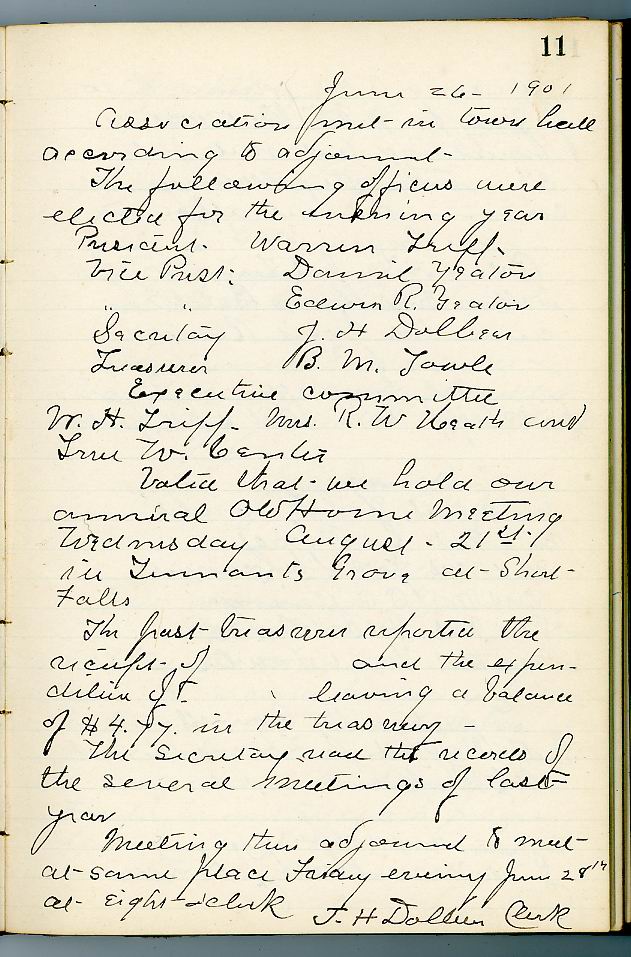 11
June 26 - 1901
Association met in town hall
according to adjournment
The following officers were
elected for the ensuing year
President. Warren Tripp.
Vice Prest: Daniel Yeaton
" " Edwin R. Yeaton
Secretary J. H Dolbear
Treasurer B. M. Towle
Executive committee
W. H. Tripp. Mrs. R. W Heath and
True W.
Voted that we hold our
annual Old Home Meeting
Wednesday August - 21st
in Tennants Grove at Short
Falls
The past treasurer reported the
receipt of and the expen-
diture of leaving a balance
of $4.77. in the treasury -
The Secretary read the records of
the several meetings of last
year
Meeting then adjourned to meet
at same place Friday evening June 28th
at eight oclock J. H Dolbear Clerk